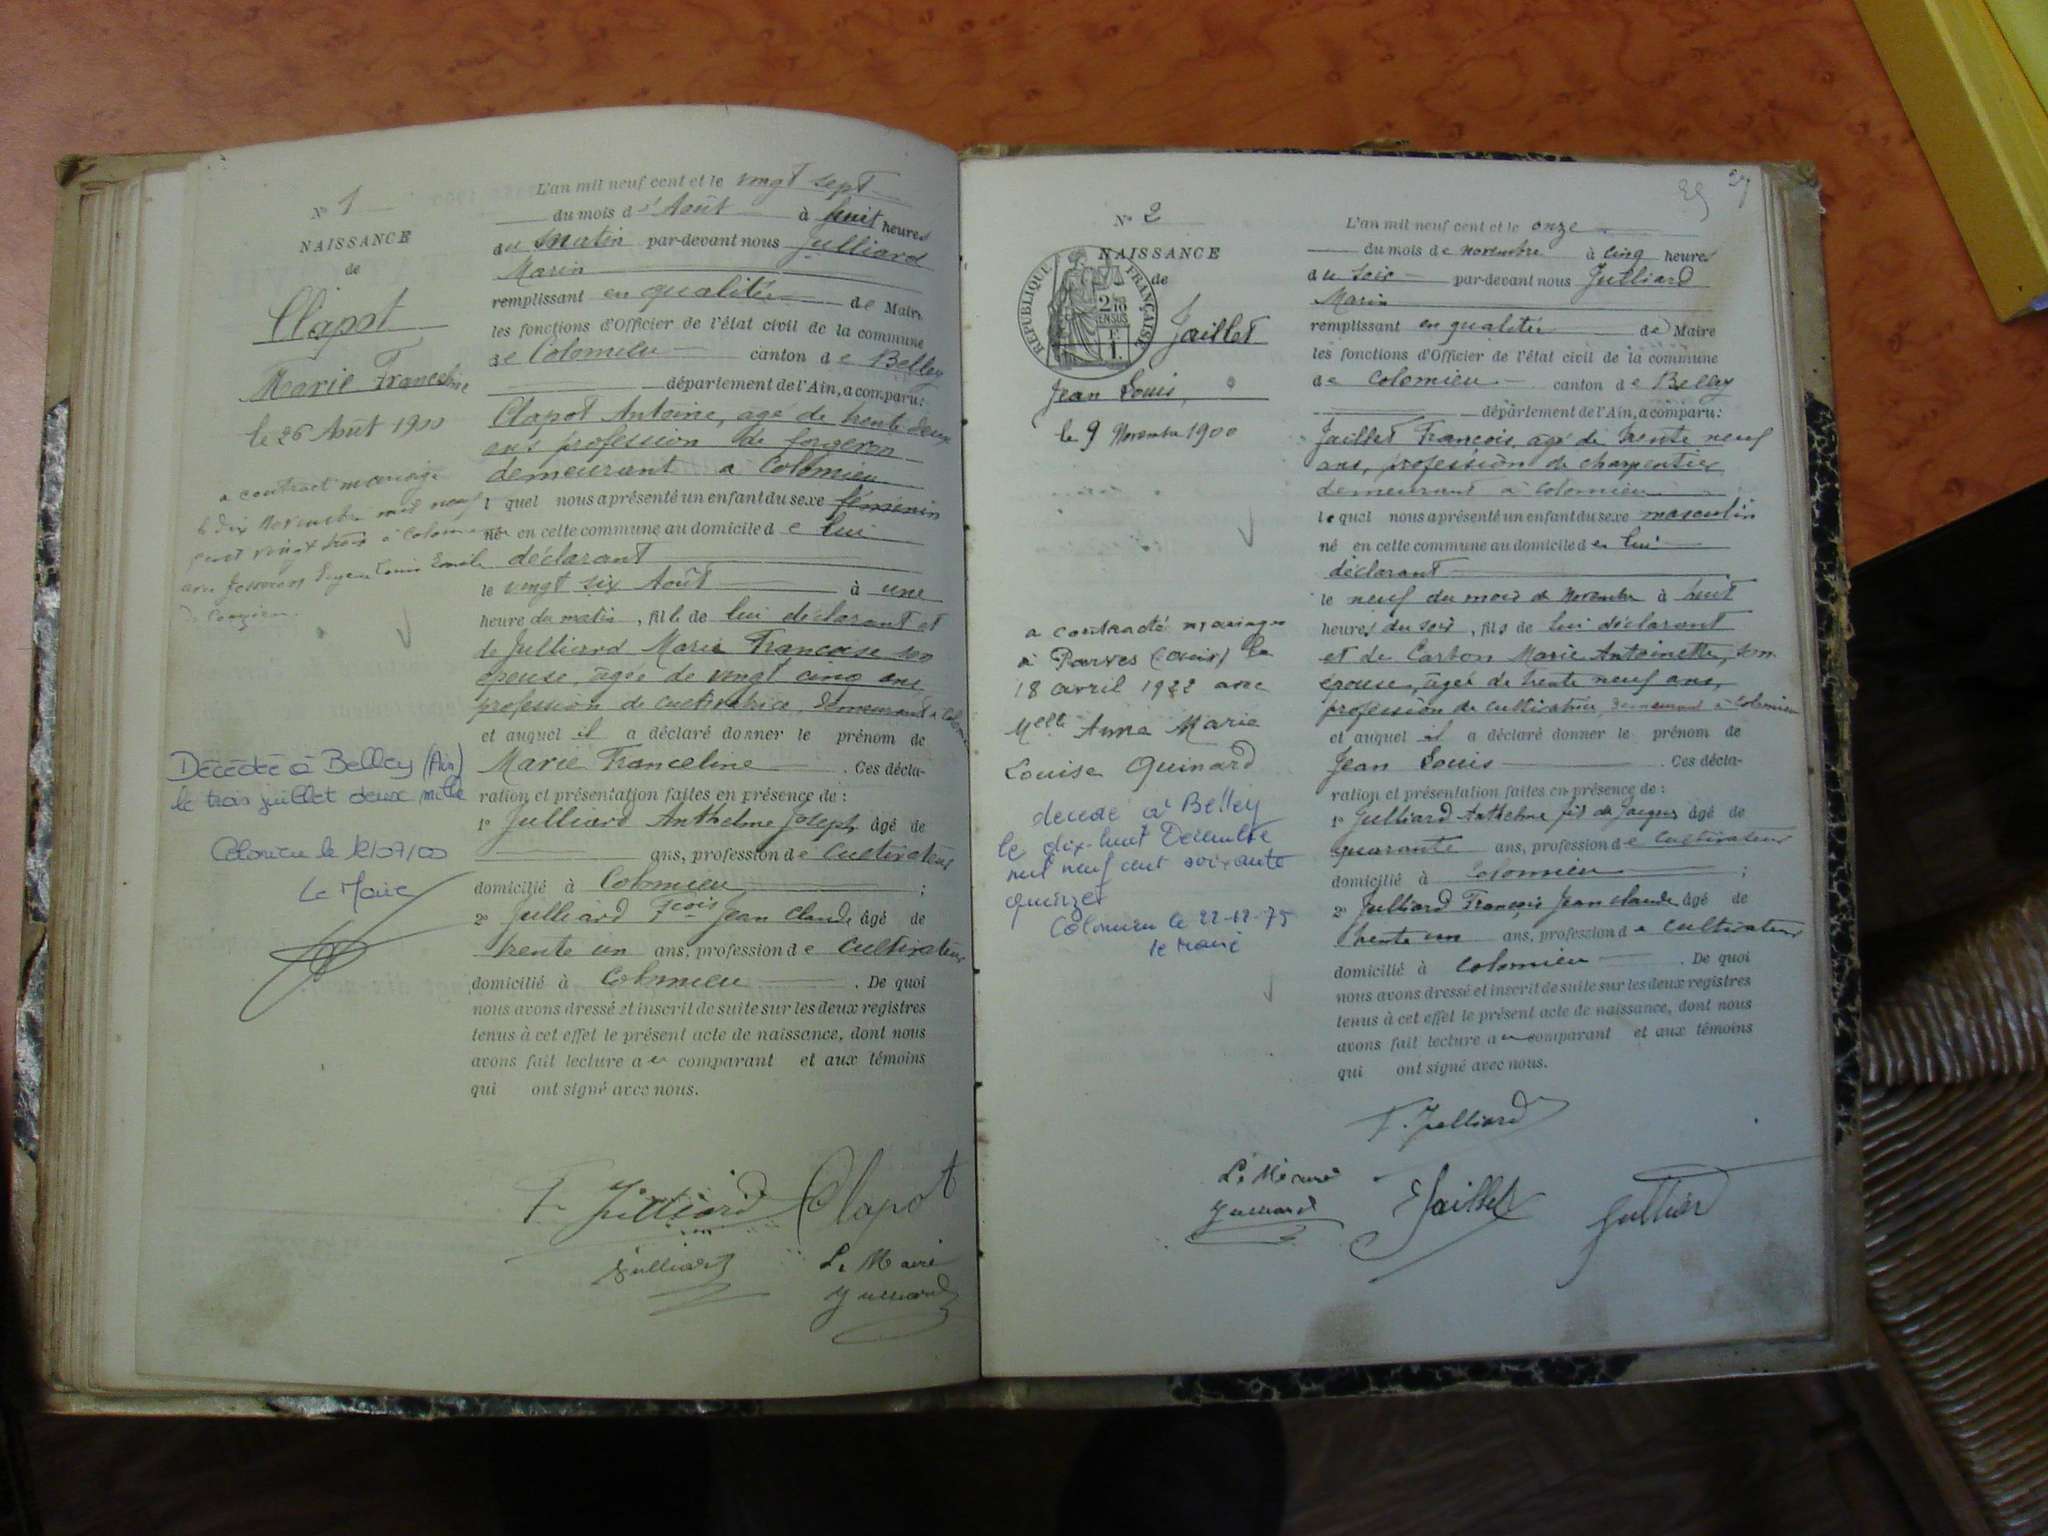 N° 1
NAISSANCE
de
Clapot
Marie Franceline
le 26 Août 1900
a contracté mariage
le dix Novembre mil neuf
cent vingt trois à Colomieu
avec Eugène Louis
Décédée à Belley (Ain)
le trois juillet deux mille
Colomieu le 12/07/00
Le Maire
L'an mil neuf cent et le vingt sept
du mois d'Août à huit heures
du matin par-devant nous Julliard
Marin
remplissant en qualitée de Maire
les fonctions d'Officier de l'état civil de la commune
de Colomieu canton de Belley
département de l'Ain, a comparu:
Clapot Antoine, agé de trente deux
ans profession de forgeron
demeurant a Colomieu
lequel nous a présenté un enfant du sexe féminin
né en cette commune au domicile de lui
déclarant
le vingt six Août à une
heure du matin, fille de lui déclarant et
de Julliard Marie Francoise son
épouse, agée de vingt cinq ans
profession de cultivatrice, demeurant à Colomieu
et auquel il a déclaré donner le prénom de
Marie Franceline. Ces décla-
ration et présentation faites en présence de :
1° Julliard Anthelme Joseph âgé de
ans, profession de cultivateur
domicilié à Colomieu ;
2° Julliard Fcois Jean Claude âgé de
trente un ans, profession de cultivateur
domicilié à Colomieu. De quoi
nous avons dressé et inscrit de suite sur les deux registres
tenus à cet effet le présent acte de naissance, dont nous
avons fait lecture au comparant et aux témoins
qui ont signé avec nous.
F. Julliard Clapot
Julliard Le Maire
Julliard
N° 2
NAISSANCE
de
RÉPUBLIQUE FRANÇAISE
Jaillet
Jean Louis
le 9 Novembre 1900
a contracté mariage
à Parves (Ain) le
18 avril 1922 avec
Melle Anna Marie
Louise Quinard
décédé à Belley
le dix-huit Décembre
mil neuf cent soixante
quinze
Colomieu le 22-12-75
le Maire
L'an mil neuf cent et le onze
du mois de novembre à cinq heures
du soir par-devant nous Julliard
Marin
remplissant en qualitée de Maire
les fonctions d'Officier de l'état civil de la commune
de Colomieu canton de Belley
département de l'Ain, a comparu:
Jaillet Francois, agé de trente neuf
ans, profession de charpentier
demeurant à Colomieu
lequel nous a présenté un enfant du sexe masculin
né en cette commune au domicile de lui
déclarant
le neuf du mois de Novembre à huit
heures du soir, fils de lui déclarant
et de Carbon Marie Antoinette, son
épouse, agée de trente neuf ans,
profession de cultivatrice, demeurant à Colomieu
et auquel il a déclaré donner le prénom de
Jean Louis. Ces décla-
ration et présentation faites en présence de :
1° Julliard Anthelme fils de Jacques âgé de
quarante ans, profession de cultivateur
domicilié à Colomieu ;
2° Julliard François Jean claude âgé de
trente un ans, profession de cultivateur
domicilié à Colomieu. De quoi
nous avons dressé et inscrit de suite sur les deux registres
tenus à cet effet le présent acte de naissance, dont nous
avons fait lecture au comparant et aux témoins
qui ont signé avec nous.
F. Julliard
Le Maire
Julliard Jaillet Julliard